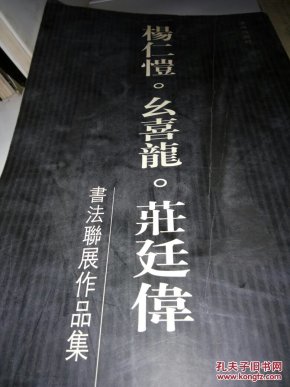 楊仁愷。幺喜龍。莊廷偉
書法聯展作品集
孔夫子旧书网